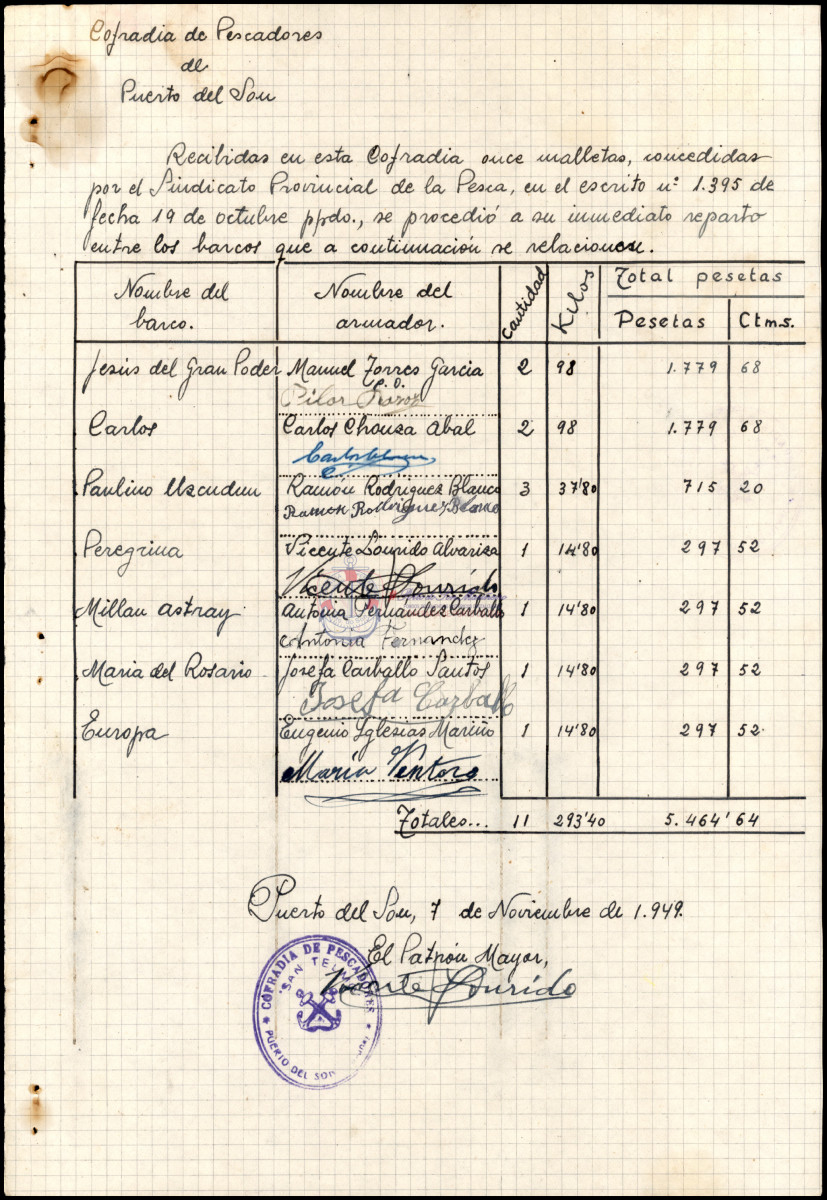 Cofradia de Pescadores
de
Puerto del Son
Recibidas en esta Cofradia once malletas, concedidas
por el Sindicato Provincial de la Pesca, en el escrito nº 1.395 de
fecha 19 de octubre ppdo., se procedió a su inmediato reparto
entre los barcos que a continuación se relacionen.
Nombre del barco. Nombre del armador. Cantidad Kilos Total pesetas
Pesetas Ctms.
Jesús del Gran Poder Manuel Torres Garcia 2 98 1.779 68
P.O.
Pilar
Carlos Carlos Chouza Abal 2 98 1.779 68
Carlos Chouza
Paulino Uzcudun Ramón Rodriguez Blanco 3 37'80 715 20
Ramon Rodriguez Blanco
Peregrina Vicente Lourido Alvariza 1 14'80 297 52
Vicente Lourido
Millan Astray Antonia Fernandez Carballo 1 14'80 297 52
Antonia Fernandez
Maria del Rosario Josefa Carballo Santos 1 14'80 297 52
Josefa Carballo
Europa Eugenio Iglesias Mariño 1 14'80 297 52
María Ventoso
Totales... 11 293'40 5.464'64
Puerto del Son, 7 de Noviembre de 1.949.
El Patrón Mayor,
Vicente Lourido
COFRADIA DE PESCADORES
"SAN TELMO"
PUERTO DEL SON